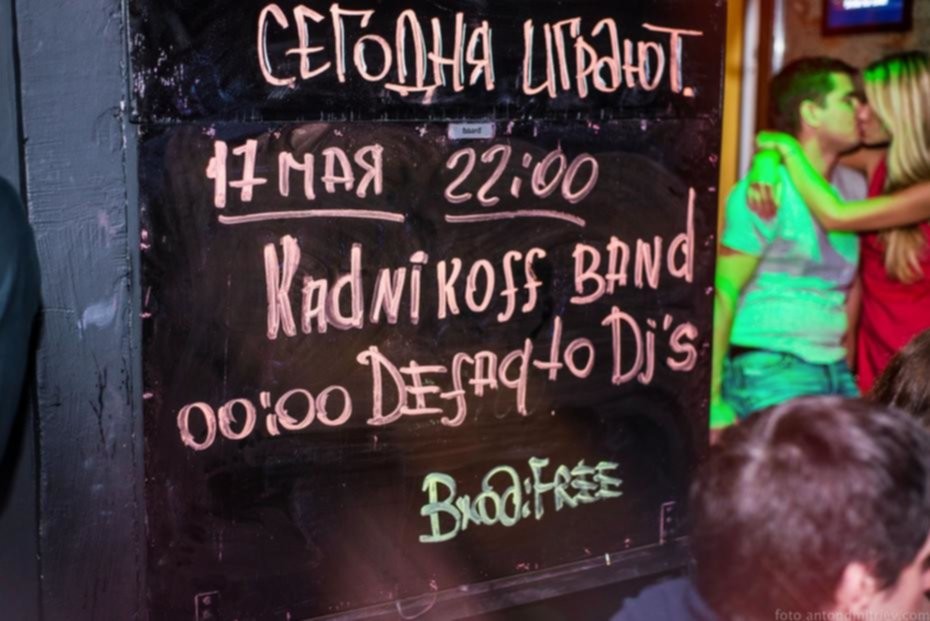 СЕГОДНЯ ИГРАЮТ.
board
17 МАЯ 22:00
KAdNiKOff BANd
00:00 DEfAqto Dj's
Вход: FREE
foto antondmitriev.com